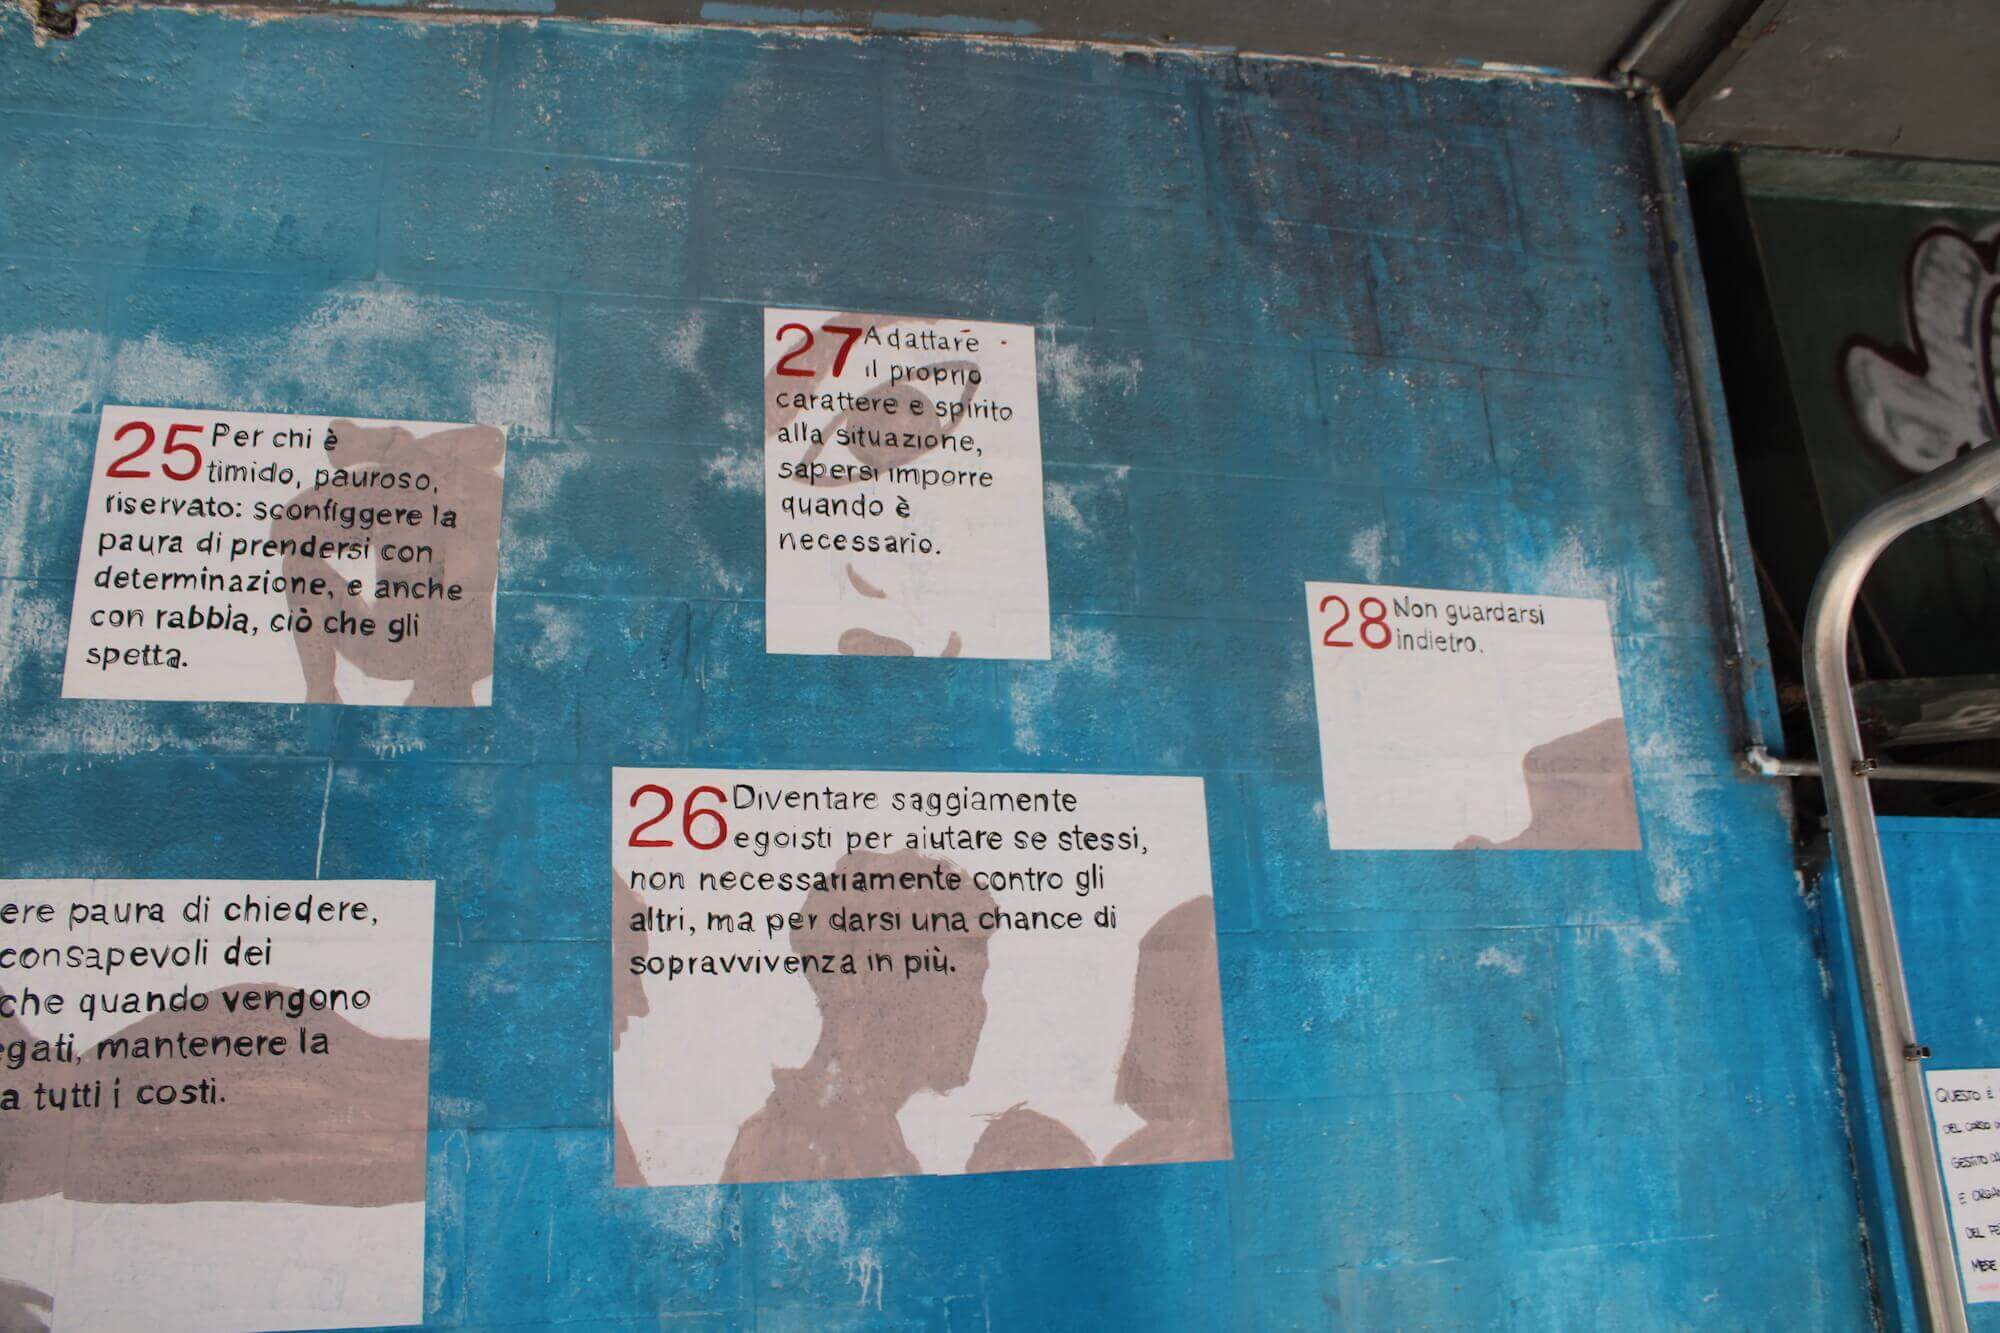 25 Per chi è
timido, pauroso,
riservato: sconfiggere la
paura di prendersi con
determinazione, e anche
con rabbia, ciò che gli
spetta.
27 Adattare
il proprio
carattere e spirito
alla situazione,
sapersi imporre
quando è
necessario.
28 Non guardarsi
indietro.
26 Diventare saggiamente
egoisti per aiutare se stessi,
non necessariamente contro gli
altri, ma per darsi una chance di
sopravvivenza in più.
ere paura di chiedere,
consapevoli dei
che quando vengono
egati, mantenere la
a tutti i costi.
QUESTO È
DEL CORSO
GESTITO
E ORGA
DEL FE
MESE